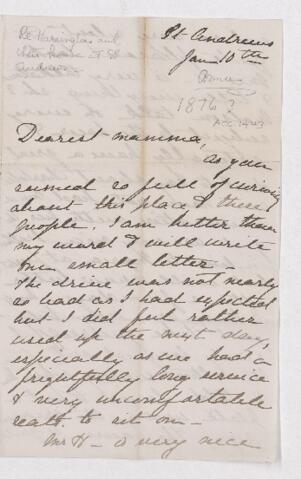 St Andrews
Jan 10th
1876?
Dearest mamma,
as you
seemed so full of
about this place & these
people. I am better than
my word & will write
one small letter -
The drive was not nearly
as bad as I had expected
but I did feel rather
used up the next day,
especially as we had a
frightfully long service
& very uncomfortable
seats to sit on -
Mr H - is very nice